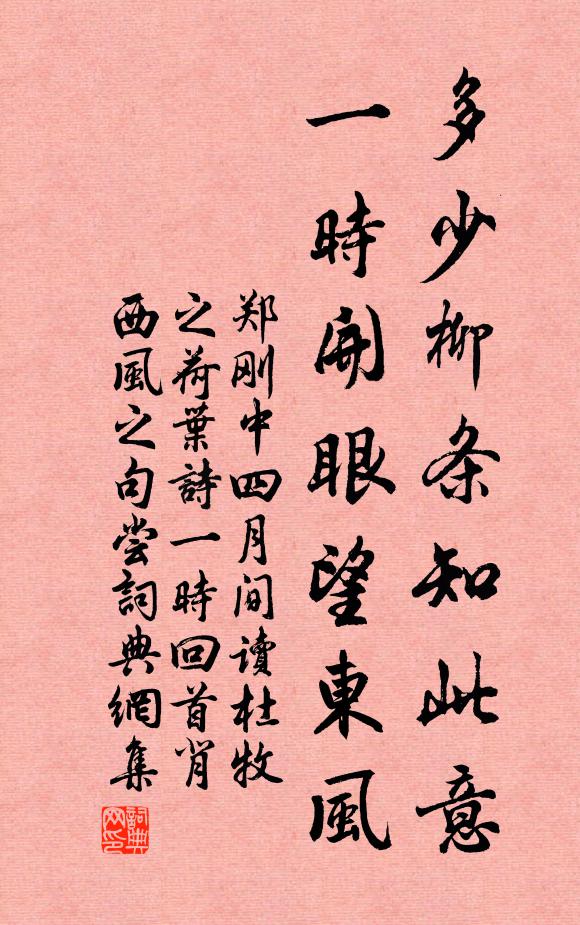 多少柳条知此意
一時開眼望東風
郑刚中四月间讀杜牧
之荷葉詩一時回首背
西風之句尝詞典網集
詞典网印